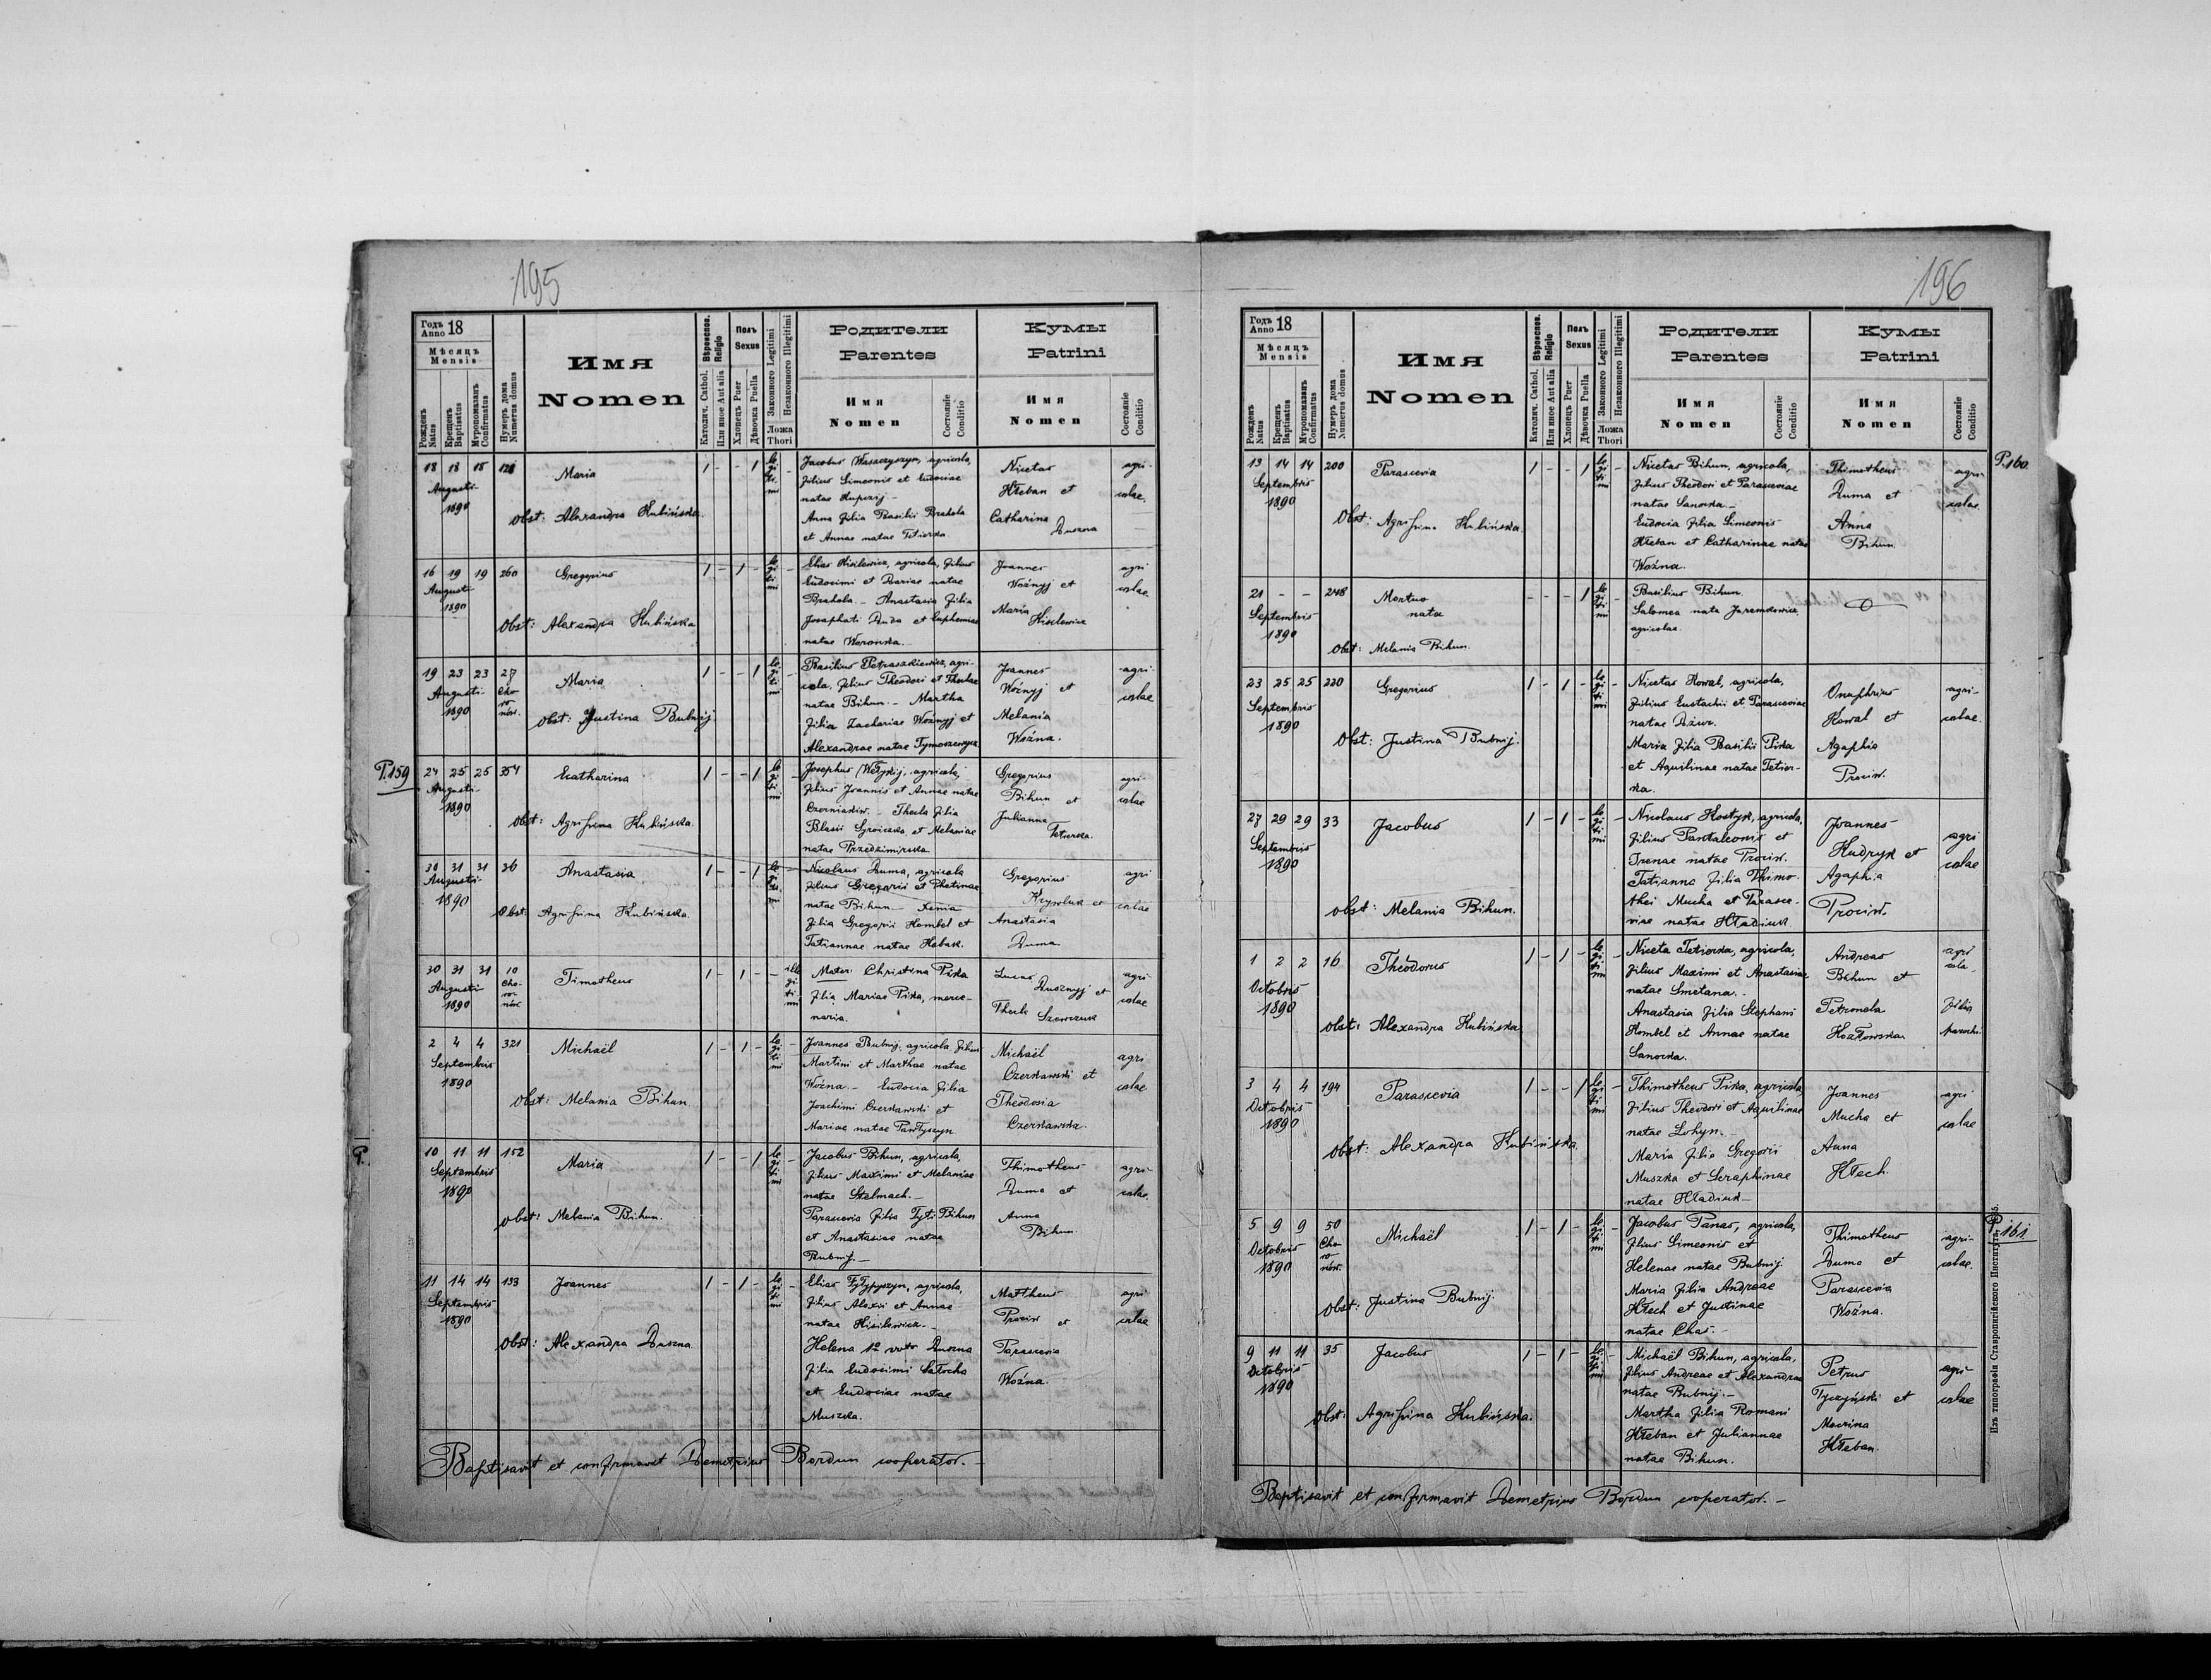 195
Годъ 18
Anno
Мѣсяцъ
Mensis
Рожденъ Natus
Крещенъ Baptisatus
Мvропомазанъ Confirmatus
Нумеръ дома Numerus domus
Имя
Nomen
Вѣроиспов. Religio
Католич. Cathol.
Или иное Aut alia
Полъ
Sexus
Хлопецъ Puer
Дѣвочка Puella
Законного Legitimi
Незаконного Illegitimi
Ложа
Thori
Родители
Parentes
Имя
Nomen
Состояніе Conditio
Кумы
Patrini
Имя
Nomen
Состояніе Conditio
18 18 18 128
Augusti
1890
Maria
Obst: Alexandra Kubińska
1 - - 1 legitimi -
Jacobus Wasaczyszyn, agricola,
filius Simeonis et Eudociae
natae Kupczij –
Anna filia Basilii Brahola
et Annae natae Tetiorka.
Nicetas
Hłeban et
Catharina
Duszna
agri-
colae.
16 19 19 260
Augusti
1890
Gregorius
Obst: Alexandra Kubińska
1 - 1 - legitimi -
Elias Kisilewicz, agricola, filius
Eudocimi et Mariae natae
Brahola. – Anastasia filia
Josaphati Duda et Euphemiae
natae Woronka.
Joannes
Woźnyj et
Maria
Kisilewicz
agri
colae
19 23 23 27
Augusti
1890
Cho-
ro-
nów.
Maria
Obst: Justina Bubnij
1 - - 1 legitimi
Basilius Petraszkiewicz, agri-
cola, filius Theodori et Theclae
natae Bihun. – Martha
filia Zachariae Woźnyj et
Alexandrae natae Tymoszewycz
Joannes
Woźnyj et
Melania
Woźna.
agri-
colae
P.159
24 25 25 354
Augusti
1890
Catharina
Obst: Agrifina Kubińska.
1 - - 1 legitimi -
Josephus Wełykij, agricola,
filius Joannis et Annae natae
Czerniawiw. – Thecla filia
Blasii Sroiczka, et Melaniae
natae Przedzimirska
Gregorius
Bihun et
Julianna
Tetiorka.
agri-
colae
30 31 31 36
Augusti
1890
Anastasia
Obst: Agrifina Kubińska.
1 - - 1 legitimi -
Nicolaus Duma, agricola
filius Gregorii et Photinae
natae Bihun – Xenia
filia Gregorii Hombel et
Tatiannae natae Habak.
Gregorius
Krywluk et
Anastasia
Duma
agri
colae
30 31 31 10
Augusti
1890
Cho-
ro-
nów
Timotheus
1 - 1 - - illegitimi
Mater: Christina Pika
filia Mariae Pika, merce-
naria.
Lucas
Dusznyj et
Thecla Szewczuk
agri-
colae
2 4 4 321
Septembris
1890
Michaël
Obst: Melania Bihun.
1 - 1 - legitimi -
Joannes Bubnij, agricola filius
Martini et Marthae natae
Woźna. – Eudocia filia
Joachimi Czerkawski et
Mariae natae Pawłyszyn
Michaël
Czerkawski et
Theodosia
Czerkawska.
agri
colae
P.
10 11 11 152
Septembris
1890
Maria
Obst: Melania Bihun.
1 - - 1 legitimi -
Jacobus Bihun, agricola,
filius Maximi et Melaniae
natae Stelmach. –
Parascevia filia Tyti Bihun
et Anastasiae natae
Bubnij –
Thimotheus
Duma et
Anna
Bihun
agri-
colae.
11 14 14 133
Septembris
1890
Joannes
Obst: Alexandra Duszna.
1 - 1 - legitimi -
Elias, agricola,
filius Alexii et Annae
natae Kisilewicz. –
Helena 1º voto Duszna
filia Eudocimi Sałocha
et Eudociae natae
Muszka.
Mattheus
Prociw et
Parascevia
Woźna.
agri
colae
Baptisavit et confirmavit Demetrius Bordun cooperator. –
196
Годъ 18
Anno
Мѣсяцъ
Mensis
Рожденъ Natus
Крещенъ Baptisatus
Мvропомазанъ Confirmatus
Нумеръ дома Numerus domus
Имя
Nomen
Вѣроиспов. Religio
Католич. Cathol.
Или иное Aut alia
Полъ
Sexus
Хлопецъ Puer
Дѣвочка Puella
Законного Legitimi
Незаконного Illegitimi
Ложа
Thori
Родители
Parentes
Имя
Nomen
Состояніе Conditio
Кумы
Patrini
Имя
Nomen
Состояніе Conditio
P.160
13 14 14 200
Septembris
1890
Parascevia
Obst: Agrifina Kubińska
1 - - 1 legitimi -
Nicetas Bihun, agricola,
filius Theodori et Parasceviae
natae Sanocka. –
Eudocia filia Simeonis
Hłeban et Catharinae natae
Woźna.
Thimotheus
Duma et
Anna
Bihun.
agri-
colae
21 - - 248
Septembris
1890
Mortuo
nata
Obst: Melania Bihun.
- - - 1 legitimi
Basilius Bihun.
Salomea nata Jaremkowicz,
agricolae.
23 25 25 220
Septembris
1890
Gregorius
Obst: Justina Bubnij.
1 - 1 - legitimi -
Nicetas Kowal, agricola,
filius Eustachii et Parasceviae
natae Dżur.
Maria filia Basilii Pika
et Aquilinae natae Tetior-
ka.
Onuphrius
Kowal et
Agaphia
Prociw.
agri-
colae.
27 29 29 33
Septembris
1890
Jacobus
Obst: Melania Bihun.
1 - 1 - legitimi -
Nicolaus Kostyk, agricola,
filius Pantaleonis et
Irenae natae Prociw.
Tatianna filia Thimo-
thei Mucha et Parasce-
viae natae Hładiuk.
Joannes
Kudryk et
Agaphia
Prociw.
agri
colae
1 2 2 16
Octobris
1890
Théodorus
Obst: Alexandra Kubińska
1 - 1 - legitimi -
Niceta Tetiorka, agricola,
filius Maximi et Anastasiae
natae Smetana. –
Anastasia filia Stephani
Hombel et Annae natae
Sanocka.
Andreas
Bihun et
Petronela
Kozłowska
agri
cola
filia
parochi
3 4 4 194
Octobris
1890
Parascevia
Obst: Alexandra Kubińska.
1 - - 1 legitimi -
Thimotheus Pika, agricola,
filius Theodori et Aquilinae
natae Lohyn.
Maria filia Gregorii
Muszka et Seraphinae
natae Hładiuk –
Joannes
Mucha et
Anna
Kłech.
agri
colae
P.161
5 9 9 50
Octobris
1890
Cho-
ro-
nów.
Michaël
Obst: Justina Bubnij.
1 - 1 - legitimi
Jacobus Panas, agricola,
filius Simeonis et
Helenae natae Bubnij.
Maria filia Andreae
Kłech et Justinae
natae Chaś. –
Thimotheus
Duma et
Parascevia
Woźna.
agri-
colae.
9 11 11 35
Octobris
1890
Jacobus
Obst: Agrifina Kubińska.
1 - 1 - legitimi -
Michaël Bihun, agricola,
filius Andreae et Alexandrae
natae Bubnij. –
Martha filia Romani
Hłeban et Juliannae
natae Bihun.
Petrus
Tyczyński et
Macrina
Hłeban.
agri
colae
Baptisavit et confirmavit Demetrius Bordun cooperator. –
Изъ типографіи Ставропигійского Института